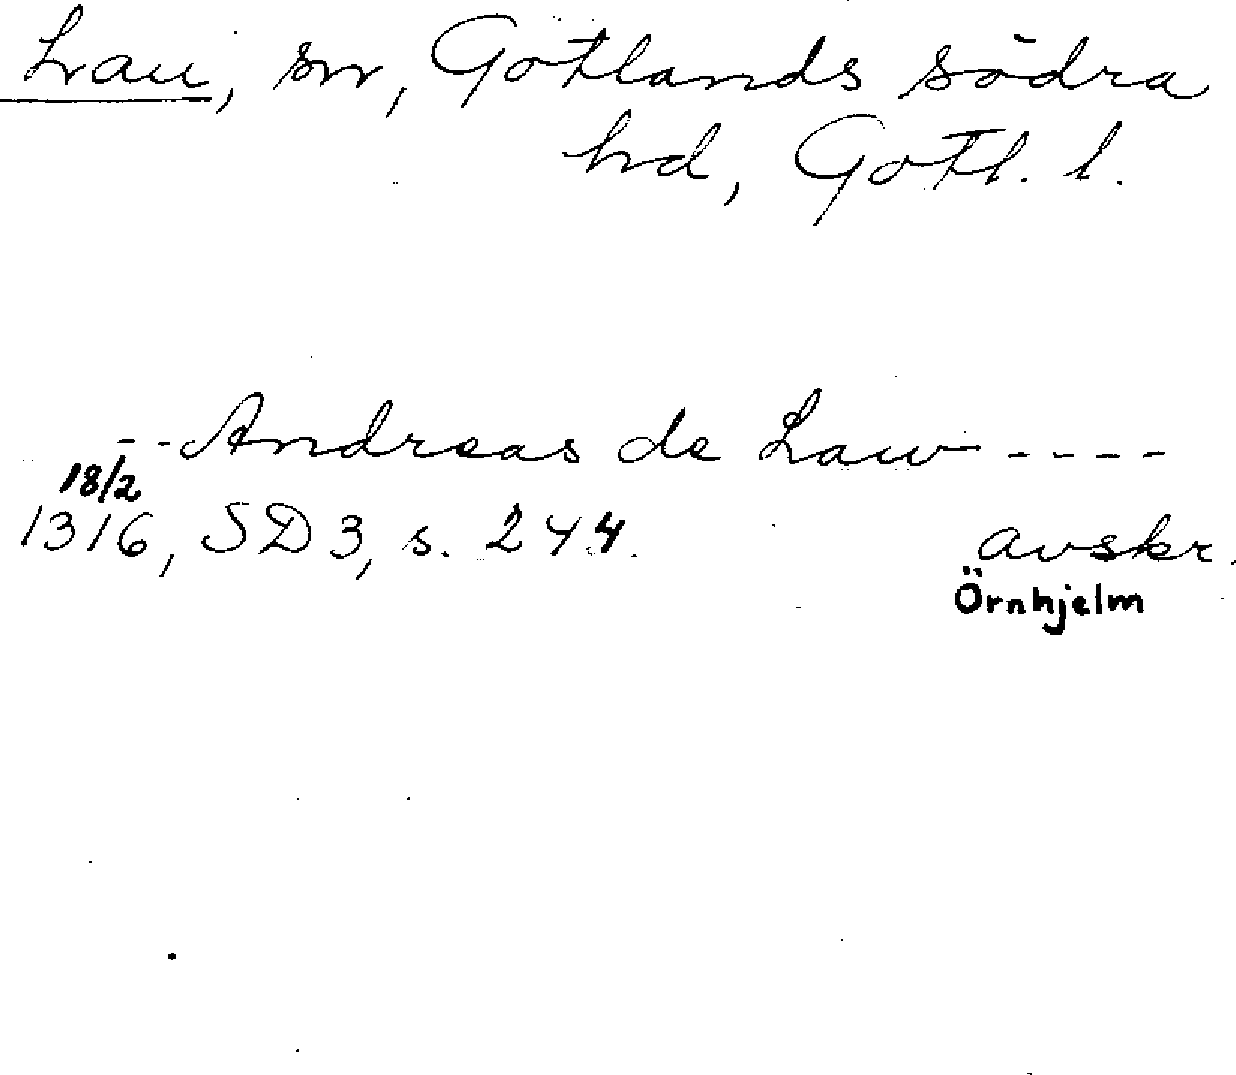 Lau, sn, Gotlands södra
hd, Gotl. l.
--Andreas de Law----
18/2
1316, SD 3, s. 244. avskr.
Örnhjelm